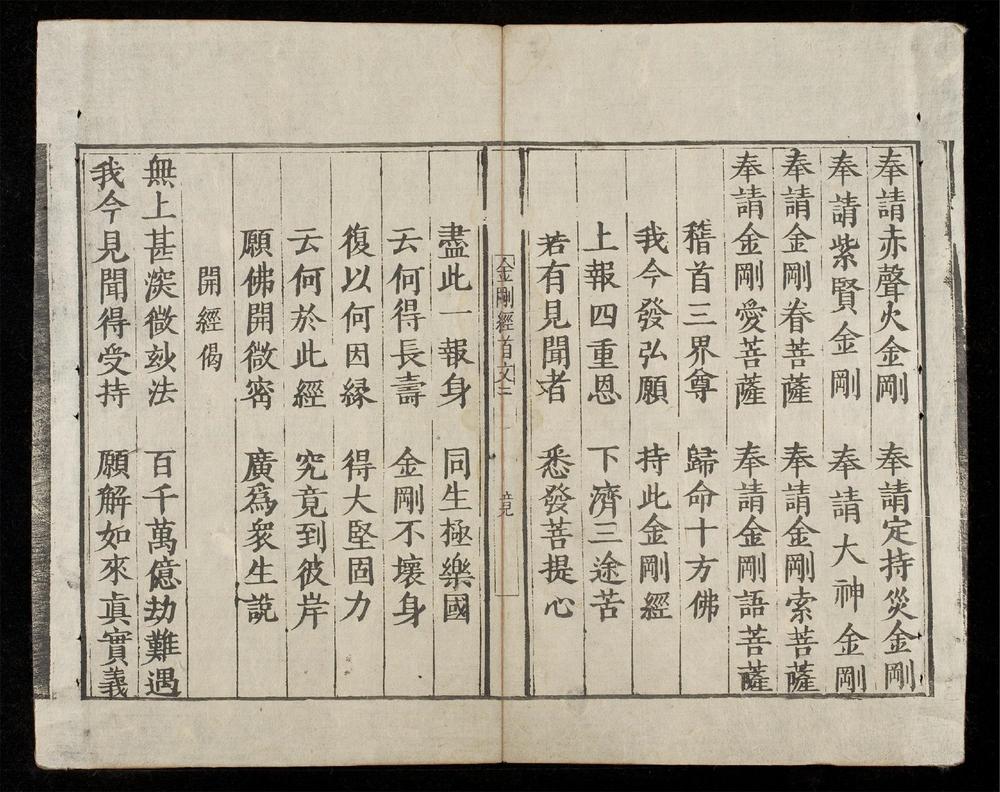 奉請赤聲火金剛　奉請定持災金剛
奉請紫賢金剛　奉請大神金剛
奉請金剛眷菩薩　奉請金剛索菩薩
奉請金剛愛菩薩　奉請金剛語菩薩
稽首三界尊　歸命十方佛
我今發弘願　持此金剛經
上報四重恩　下濟三途苦
若有見聞者　悉發菩提心
金剛經首文三
盡此一報身　同生極樂國
云何得長壽　金剛不壞身
復以何因緣　得大堅固力
云何於此經　究竟到彼岸
願佛開微宻　廣爲衆生說
開經偈
無上甚深微玅法　百千萬億劫難遇
我今見聞得受持　願解如來眞實義